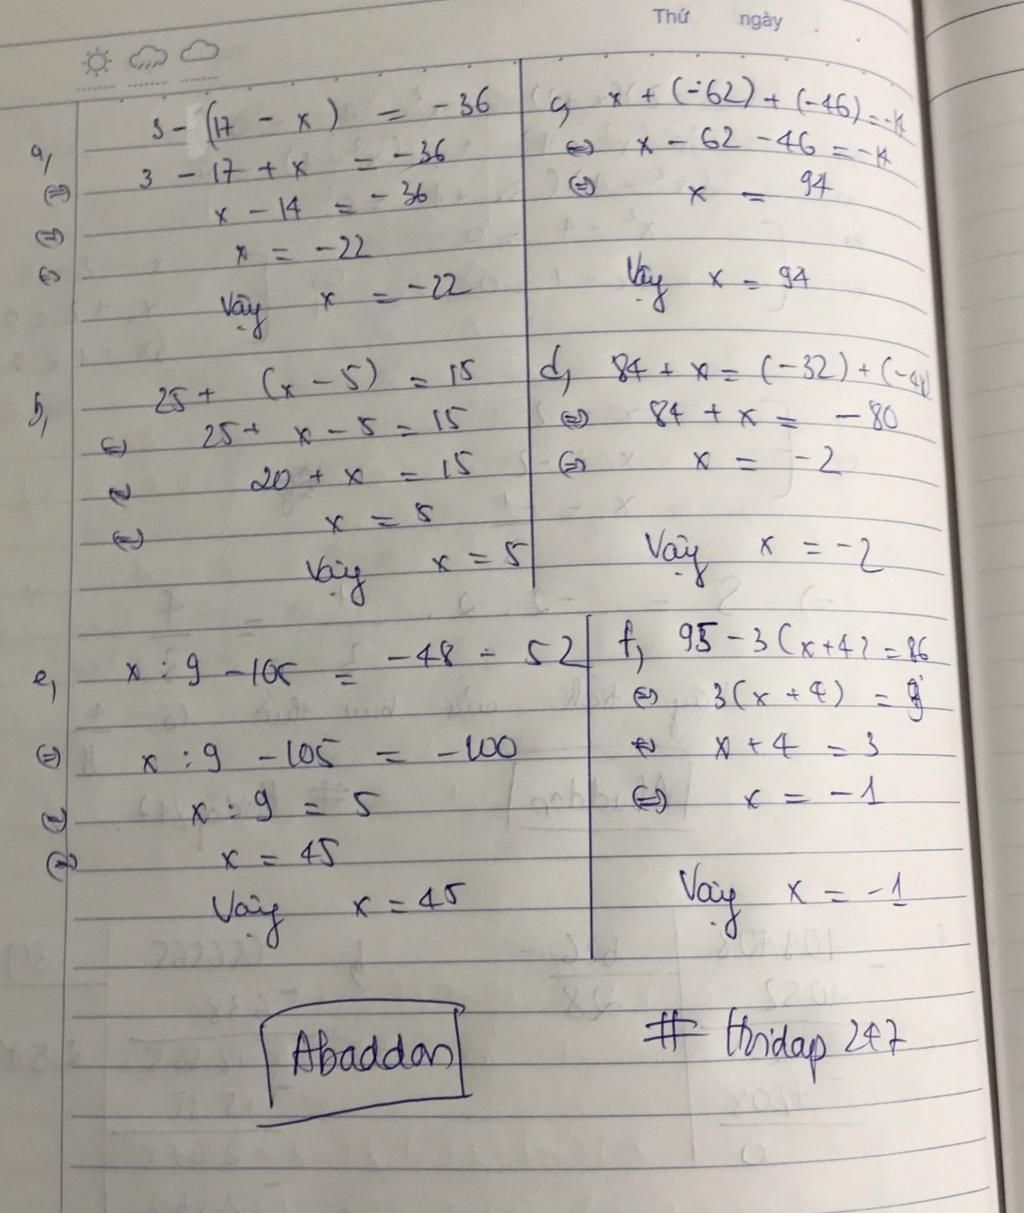 Thứ ngày
a, 3 - (17 - x) = -36
⇔ 3 - 17 + x = -36
⇔ x - 14 = -36
⇔ x = -22
Vậy x = -22
c, x + (-62) + (-46) = -14
⇔ x - 62 - 46 = -14
⇔ x = 94
Vậy x = 94
b, 25 + (x - 5) = 15
⇔ 25 + x - 5 = 15
⇔ 20 + x = 15
⇔ x = 5
Vậy x = 5
d, 84 + x = (-32) + (-48)
⇔ 84 + x = -80
⇔ x = -2
Vậy x = -2
e, x : 9 - 105 = -48 - 52
⇔ x : 9 - 105 = -100
⇔ x : 9 = 5
⇔ x = 45
Vậy x = 45
f, 95 - 3(x+4) = 86
⇔ 3(x + 4) = 9
⇔ x + 4 = 3
⇔ x = -1
Vậy x = -1
Abaddon
# thidap 247